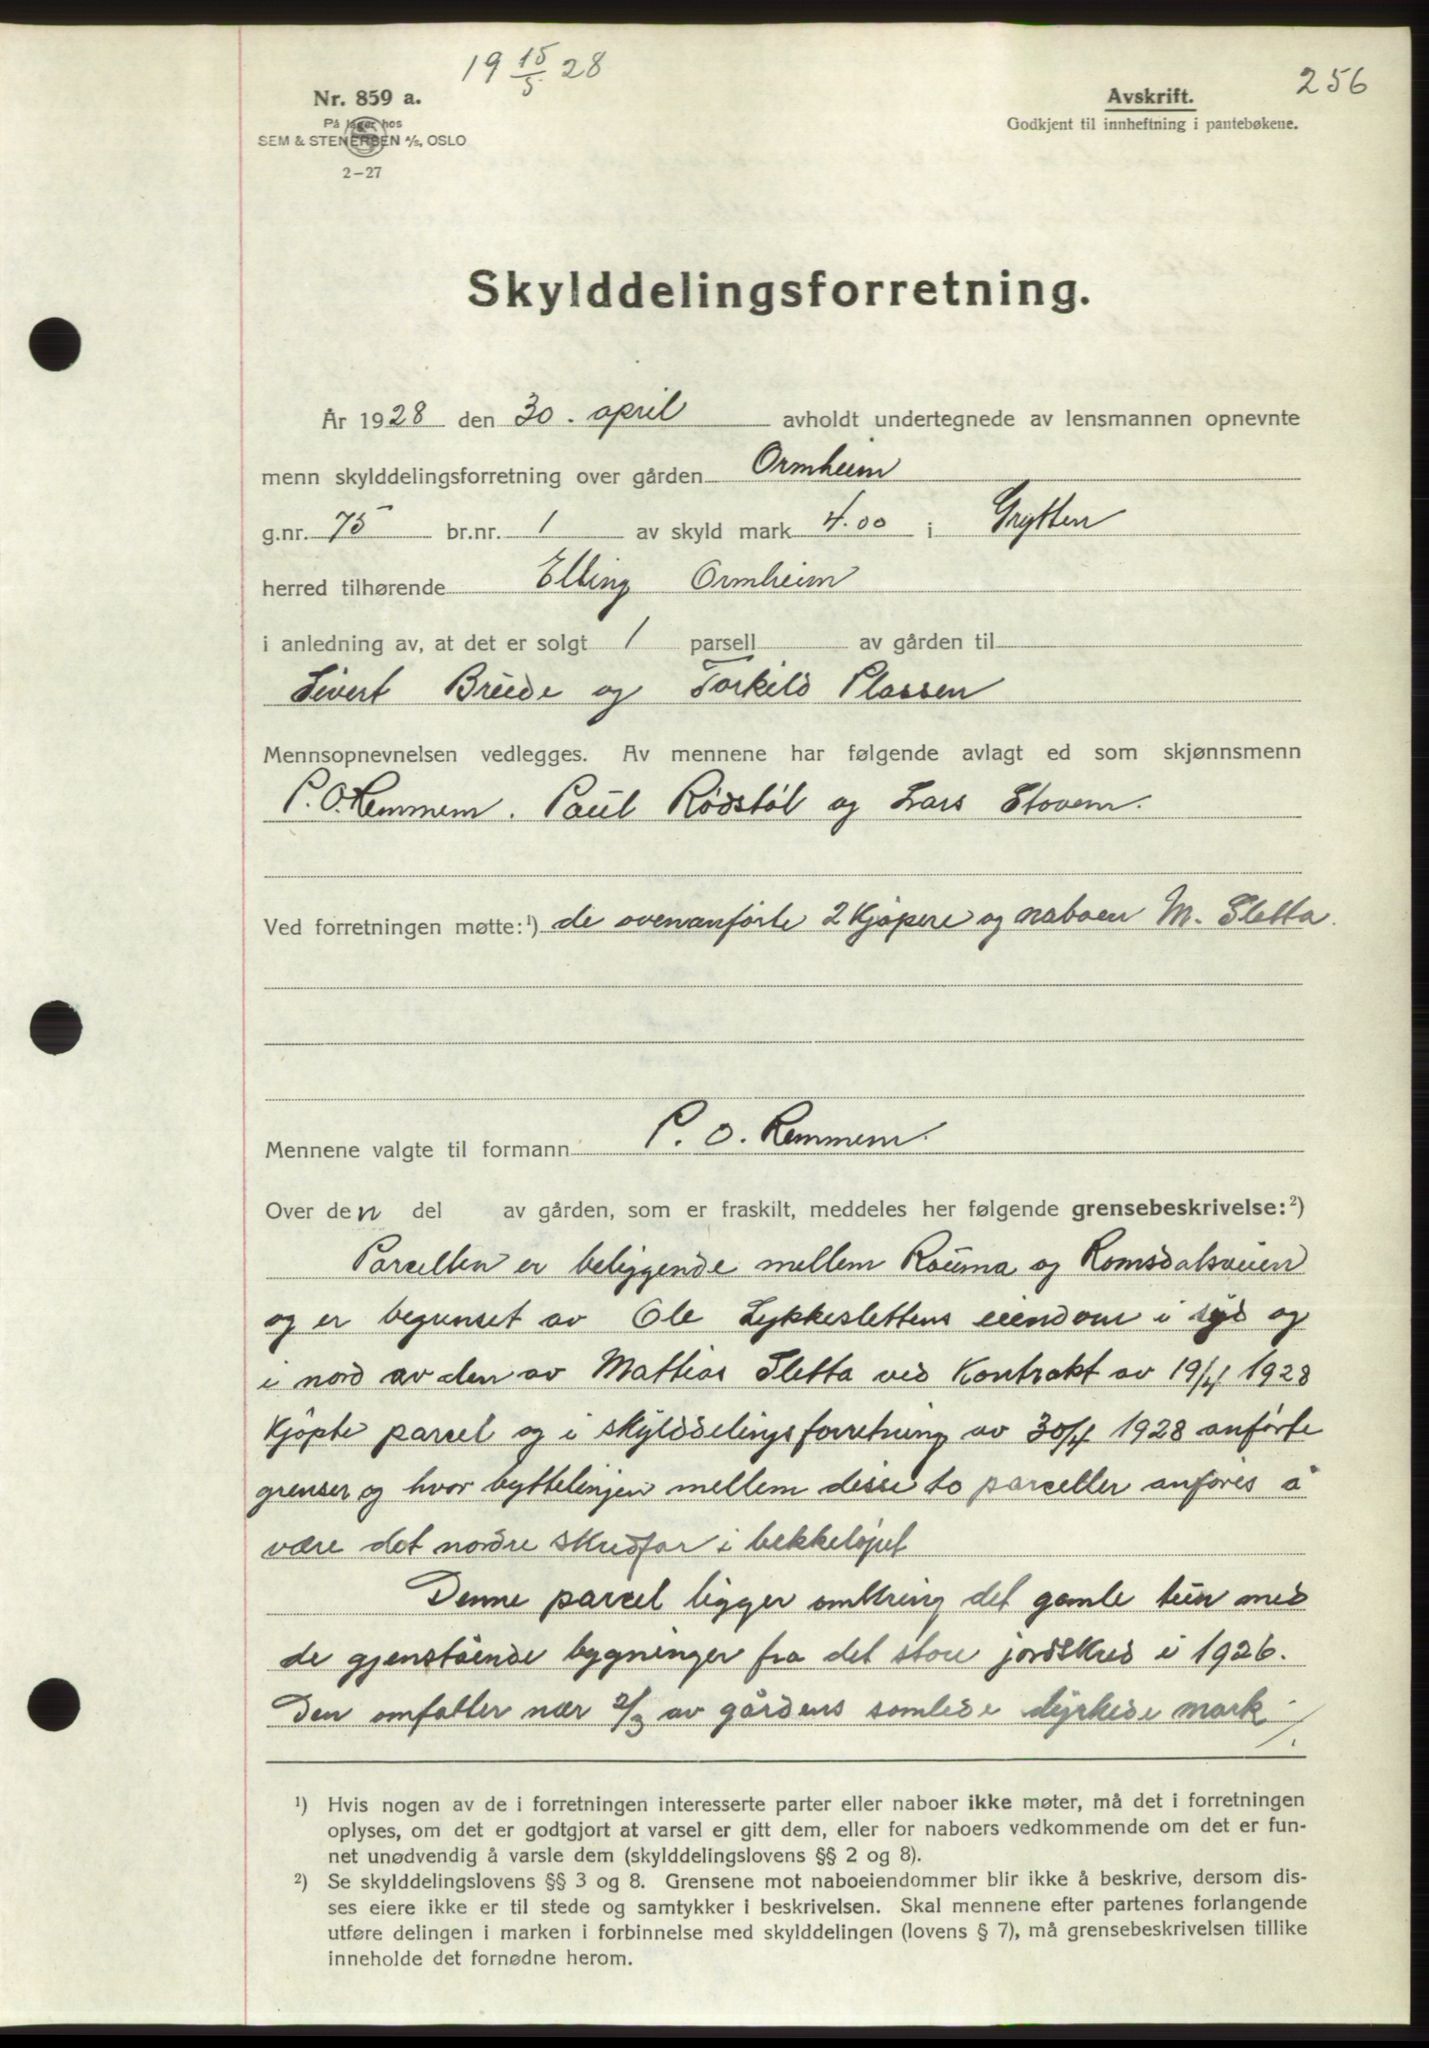 19 15/5 28
256
Nr. 859 a.
På lager hos
SEM & STENERSEN A/S, OSLO
2–27
Avskrift.
Godkjent til innheftning i pantebøkene.
Skylddelingsforretning.
År 1928 den 30. april avholdt undertegnede av lensmannen opnevnte
menn skylddelingsforretning over gården Ormheim
g.nr. 75 br.nr. 1 av skyld mark 4.00 i Grytten
herred tilhørende Elling Ormheim
i anledning av, at det er solgt 1 parsell av gården til
Sivert Brude og Torkild Plassen
Mennsopnevnelsen vedlegges. Av mennene har følgende avlagt ed som skjønnsmenn
P. O. Remmem. Paul Rødstøl og Lars Stovem.
Ved forretningen møtte:¹) de ovenanførte 2 kjøpere og naboen M. Sletta.
Mennene valgte til formann P. O. Remmem.
Over den del av gården, som er fraskilt, meddeles her følgende grensebeskrivelse:²)
Parcellen er beliggende mellem Rauma og Romsdalsveien
og er begrenset av Ole Lykkeslettens eiendom i syd og
i nord av den av Mattias Sletta ved kontrakt av 19/4 1928
kjøpte parcel og i skylddelingsforretning av 30/4 1928 anførte
grenser og hvor byttelinjen mellem disse to parceller anføres å
være det nordre skredfar i bekkeløpet
Denne parcel ligger omkring det gamle tun med
de gjenstående bygninger fra det store jordskred i 1926.
Den omfatter nær 2/3 av gårdens samlede dyrkede mark
/.
¹) Hvis nogen av de i forretningen interesserte parter eller naboer ikke møter, må det i forretningen
oplyses, om det er godtgjort at varsel er gitt dem, eller for naboers vedkommende om det er fun-
net unødvendig å varsle dem (skylddelingslovens §§ 2 og 8).
²) Se skylddelingslovens §§ 3 og 8. Grensene mot naboeiendommer blir ikke å beskrive, dersom dis-
ses eiere ikke er til stede og samtykker i beskrivelsen. Skal mennene efter partenes forlangende
utføre delingen i marken i forbinnelse med skylddelingen (lovens § 7), må grensebeskrivelsen tillike
inneholde det fornødne herom.